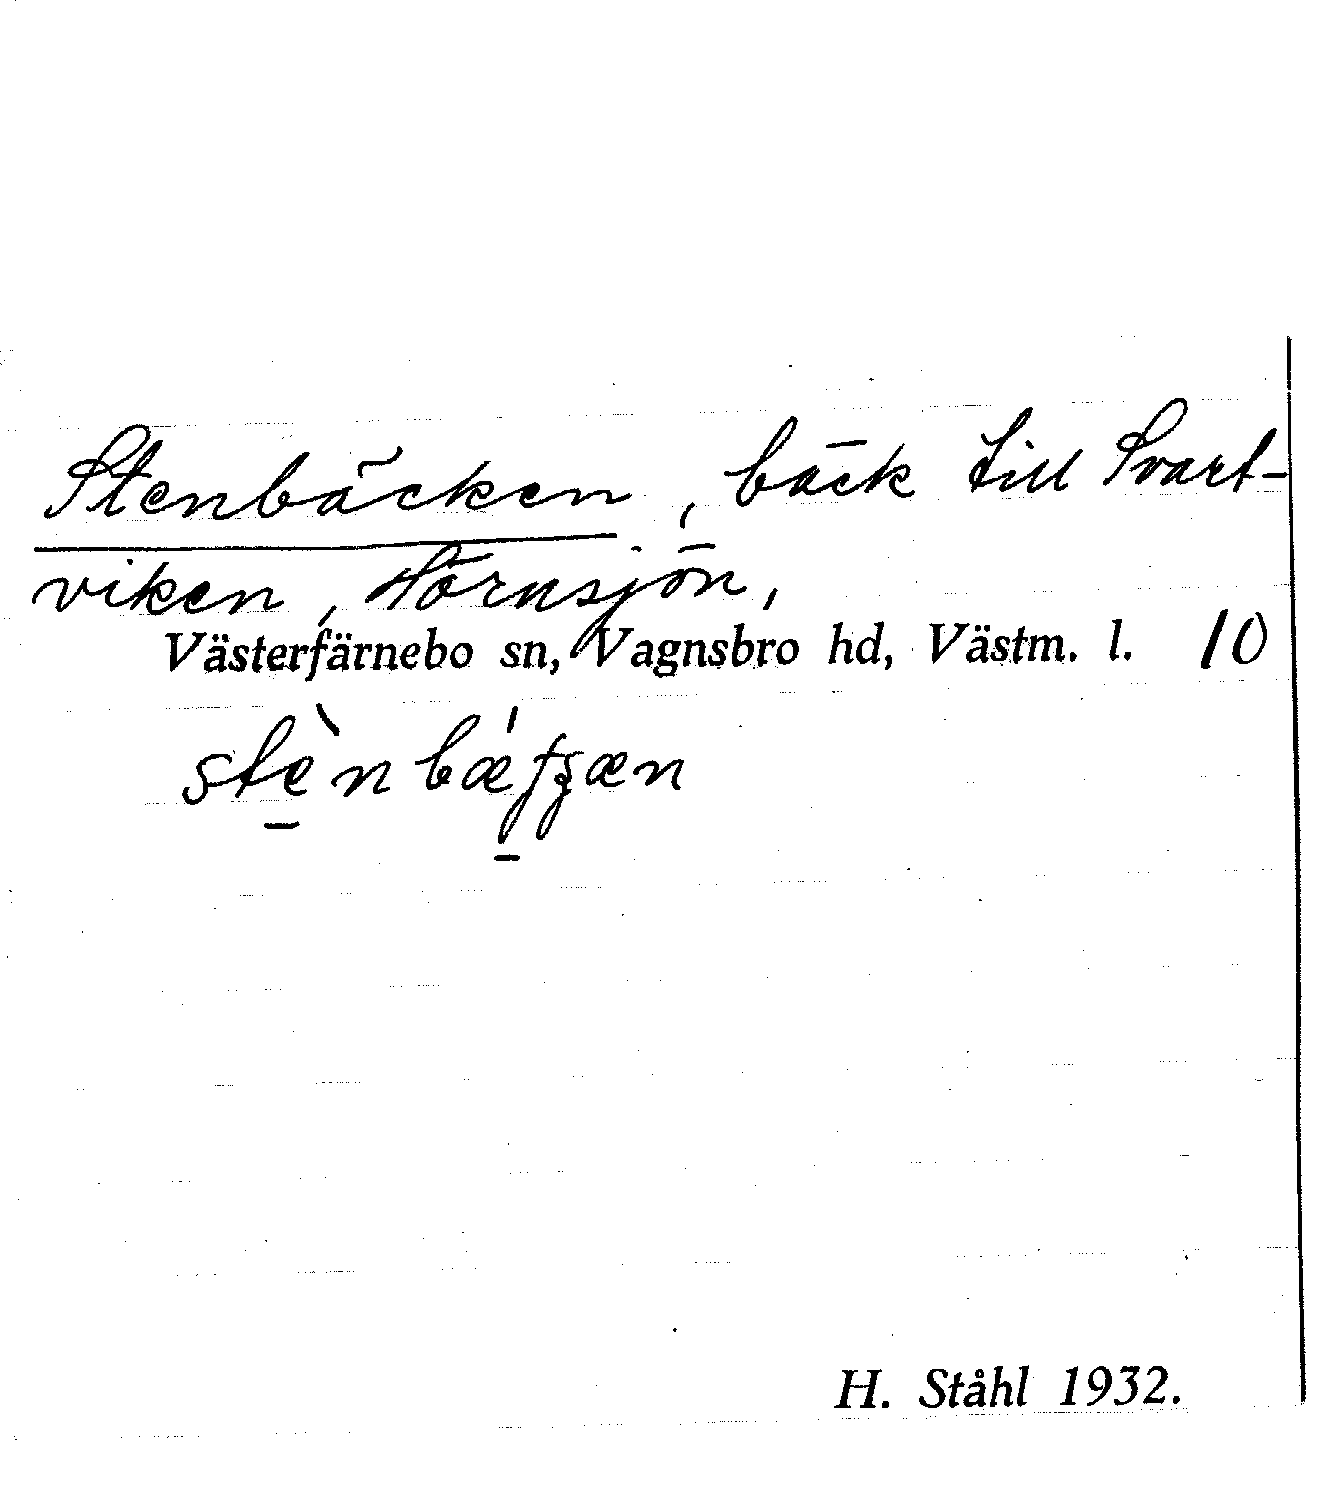 Stenbäcken, bäck till Svart-
viken, Hörnsjön,
Västerfärnebo sn, Vagnsbro hd, Västm. l. 10
H. Ståhl 1932.